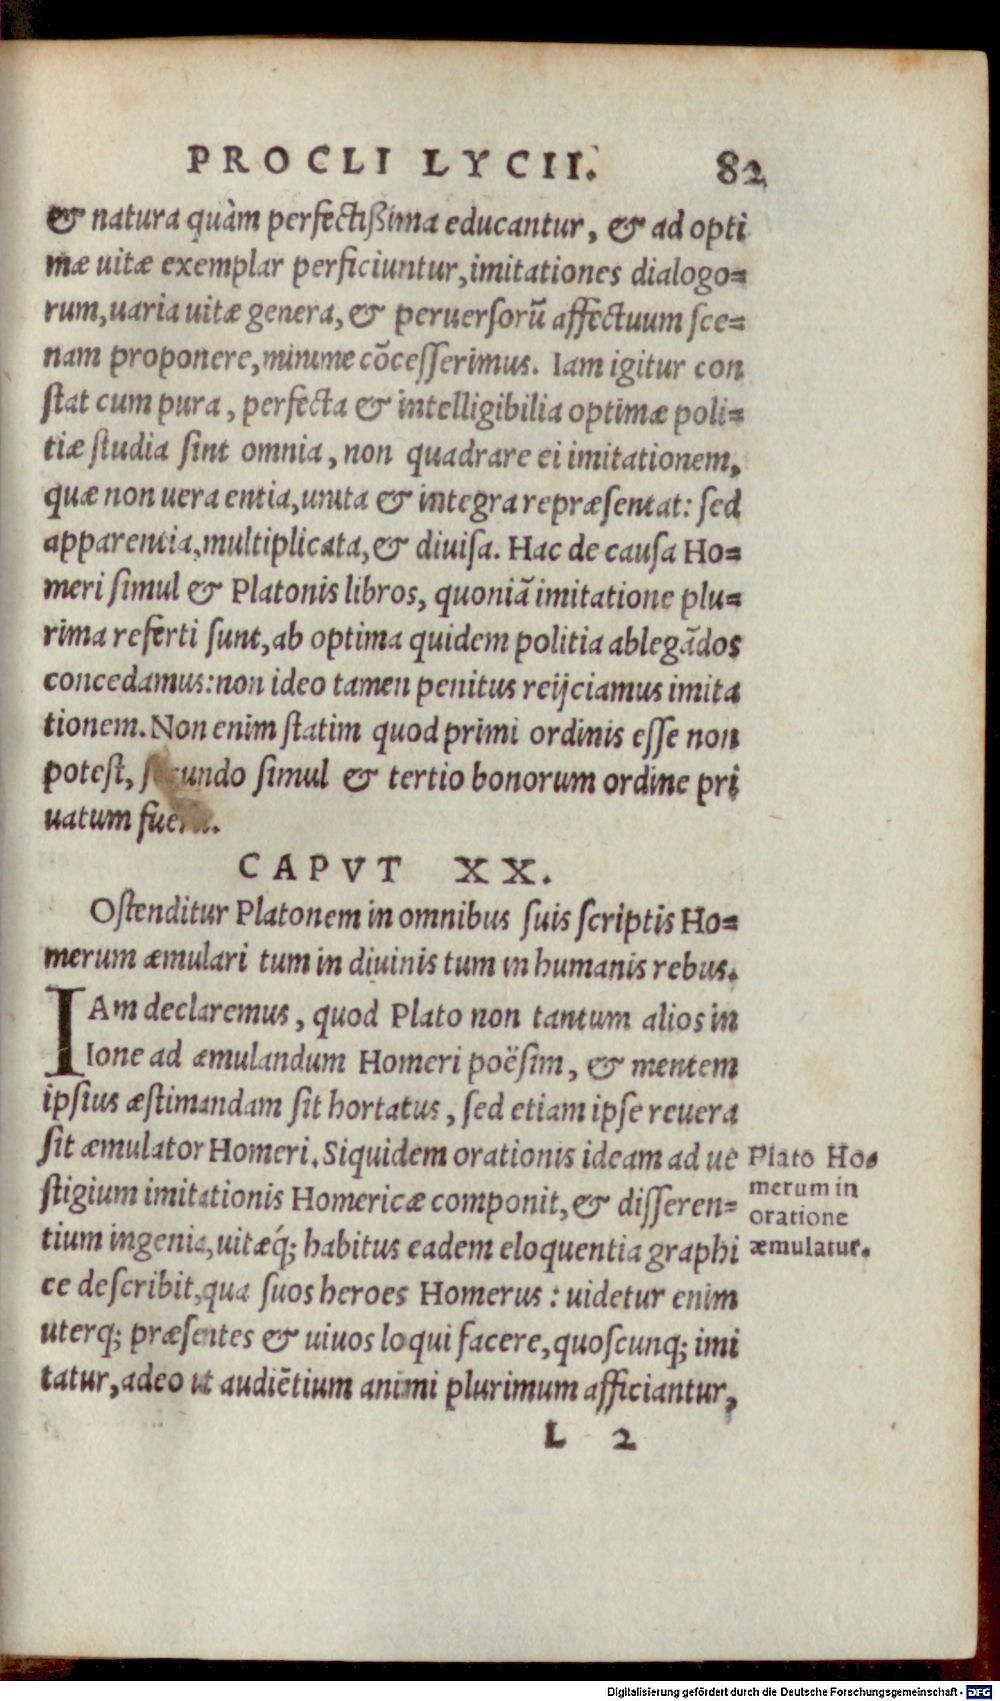 PROCLI LYCII. 82
& natura quàm perfectißima educantur, & ad opti
mæ uitæ exemplar perficiuntur, imitationes dialogo=
rum, uaria uitæ genera, & peruerſorũ affectuum ſce=
nam proponere, minime cõceſſerimus. Iam igitur con
ſtat cum pura, perfecta & intelligibilia optimæ poli=
tiæ ſtudia ſint omnia, non quadrare ei imitationem,
quæ non uera entia, unita & integra repræſentat: ſed
apparentia, multiplicata, & diuiſa. Hac de cauſa Ho=
meri ſimul & Platonis libros, quoniã imitatione plu=
rima referti ſunt, ab optima quidem politia ablegãdos
concedamus: non ideo tamen penitus reijciamus imita
tionem. Non enim ſtatim quod primi ordinis eſſe non
poteſt, ſecundo ſimul & tertio bonorum ordine pri
uatum fuerit.
CAPVT XX.
Oſtenditur Platonem in omnibus ſuis ſcriptis Ho=
merum æmulari tum in diuinis tum in humanis rebus.
IAm declaremus, quod Plato non tantum alios in
Ione ad æmulandum Homeri poëſim, & mentem
ipſius æſtimandam ſit hortatus, ſed etiam ipſe reuera
ſit æmulator Homeri. Siquidem orationis ideam ad ue
ſtigium imitationis Homericæ componit, & diſſeren=
tium ingenia, uitæq́; habitus eadem eloquentia graphi
ce deſcribit, qua ſuos heroes Homerus: uidetur enim
uterq; præſentes & uiuos loqui facere, quoſcunq; imi
tatur, adeo ut audiẽtium animi plurimum afficiantur,
Plato Ho=
merum in
oratione
æmulatur.
L 2
Digitalisierung gefördert durch die Deutsche Forschungsgemeinschaft - DFG